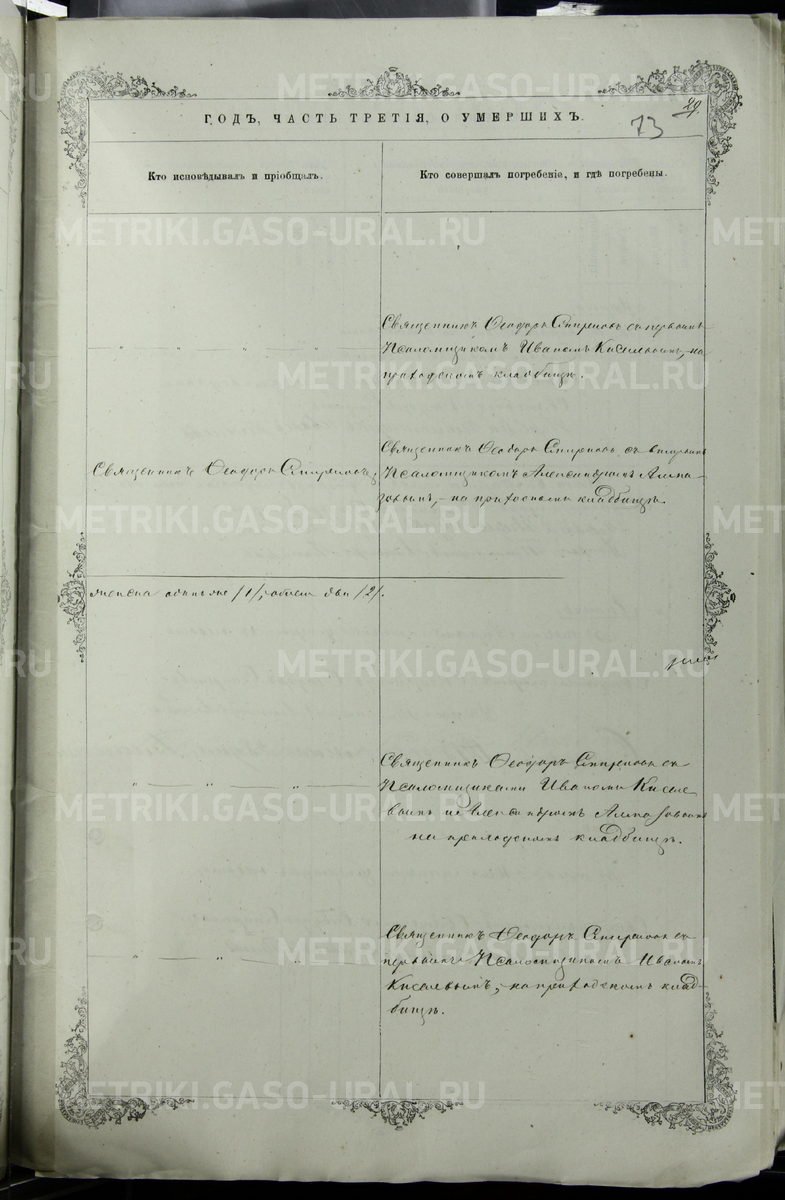 ГОДЪ, ЧАСТЬ ТРЕТІЯ, О УМЕРШИХЪ.
73
29.
Кто исповѣдывалъ и пріобщалъ.
Кто совершалъ погребеніе, и гдѣ погребены.
Священникъ Ѳеодоръ съ первымъ
Псаломщикомъ Иваномъ Киселевымъ, на
приходскомъ кладбищѣ.
Священникъ Ѳеодоръ
Священникъ Ѳеодоръ съ вторымъ
Псаломщикомъ Александромъ Алма-
зовымъ, на приходскомъ кладбищѣ.
/1/, обоего два /2/.
Священникъ Ѳеодоръ съ
Псаломщиками Иваномъ Киселе-
вымъ и Александромъ Алмазовымъ
на приходскомъ кладбищѣ.
Священникъ Ѳеодоръ съ
первымъ Псаломщикомъ Иваномъ
Киселевымъ, на приходскомъ клад-
бищѣ.
METRIKI.GASO-URAL.RU